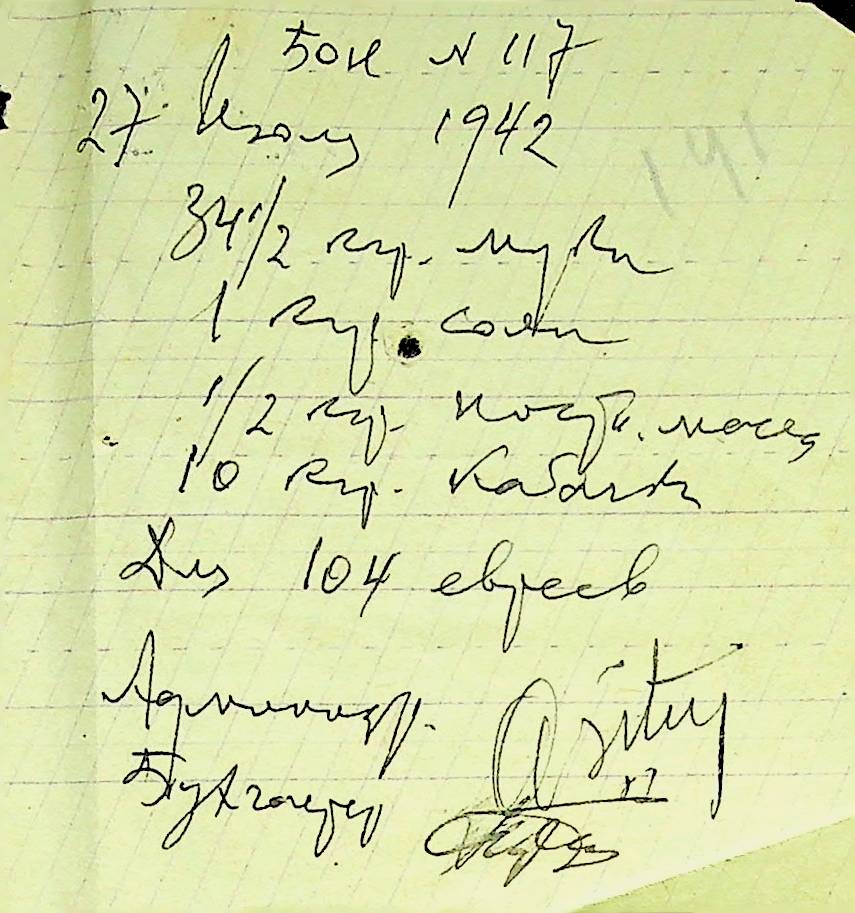 Бон N 117
27 Июля 1942
191
34 1/2 кгр. муки
1 кгр. соли
1/2 кгр. масла
10 кгр. Кабачк
Для 104 евреев
Администр.
Бухгалтер